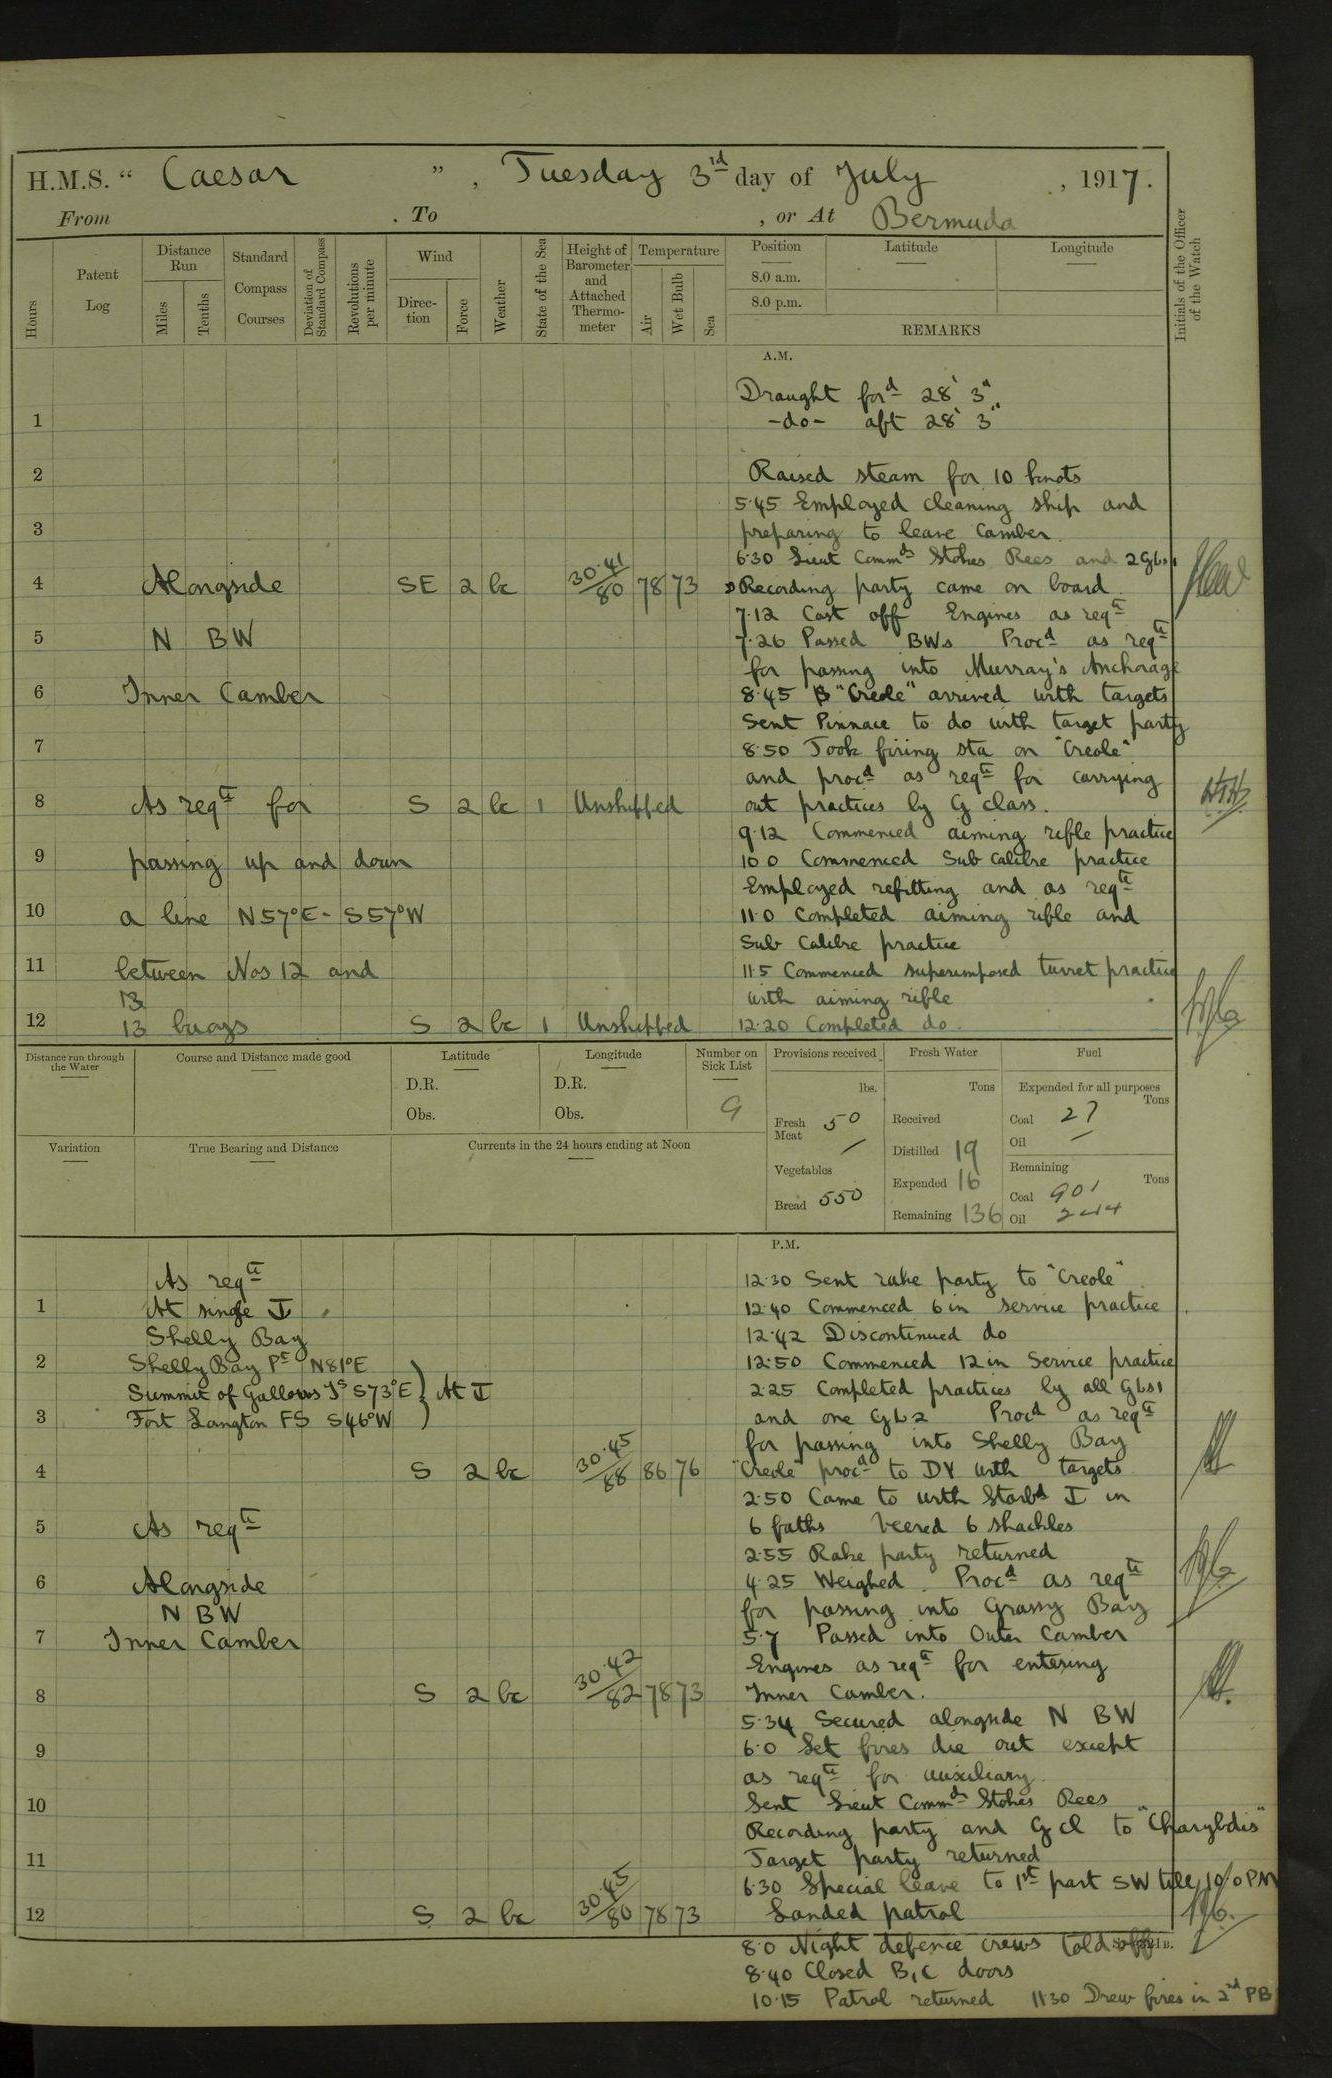 H.M.S. " Caesar ", Tuesday 3rd day of July, 1917.
From . To , or At Bermuda
Hours
Patent Log
Distance Run
Miles
Tenths
Standard Compass Courses
Deviation of Standard Compass
Revolutions per minute
Wind
Direction
Force
Weather
State of the Sea
Height of Barometer and Attached Thermometer
Temperature
Air
Wet Bulb
Sea
Position
Latitude
Longitude
8.0 a.m.
8.0 p.m.
REMARKS
Initials of the Officer of the Watch
A.M.
Draught ford 28' 3"
1 -do- aft 28' 3"
2 Raised steam for 10 knots
5.45 Employed cleaning ship and
3 preparing to leave Camber.
6.30 Lieut Commd Stokes Rees and 2 GLs1
4 Alongside SE 2 bc 30.41/80 78 73 Recording party came on board
7.12 Cast off Engines as reqte
5 N BW 7.26 Passed BWs Procd as reqte
for passing into Murray's Anchorage
6 Inner Camber 8.45 "Creole" arrived with targets
Sent Pinnace to do with target party
7 8.50 Took firing sta on "Creole"
and procd as reqte for carrying
8 As reqte for S 2 bc 1 Unshipped out practices by G class.
9.12 Commenced aiming rifle practice
9 passing up and down 10 0 Commenced Sub calibre practice
Employed refitting and as reqte
10 a line N57°E - S57°W 11.0 Completed aiming rifle and
Sub Calibre practice
11 between Nos 12 and 11.5 Commenced superimposed turret practice
13 with aiming rifle
12 13 buoys S 2 bc 1 Unshipped 12.20 Completed do.
Distance run through the Water
Course and Distance made good
Latitude
D.R.
Obs.
Longitude
D.R.
Obs.
Number on Sick List
9
Provisions received
lbs.
Fresh Meat 50
Vegetables
Bread 550
Fresh Water
Tons
Received
Distilled 19
Expended 16
Remaining 136
Fuel
Expended for all purposes
Tons
Coal 27
Oil —
Remaining
Tons
Coal 901
Oil 244
Variation
True Bearing and Distance
Currents in the 24 hours ending at Noon
P.M.
As reqte 12.30 Sent rake party to "Creole"
1 At single 12.40 Commenced 6 in service practice
Shelly Bay 12.42 Discontinued do
2 Shelly Bay Pt N81°E 12.50 Commenced 12 in Service practice
Summit of Gallows Is S73°E } At 2.25 Completed practices by all GLs1
3 Fort Langton FS S46°W and one GL2 Procd as reqte
for passing into Shelly Bay
4 S 2 bc 30.45/88 86 76 "Creole" procd to DY with targets
2.50 Came to with Starbd in
5 As reqte 6 faths Veered 6 shackles
2.55 Rake party returned
6 Alongside 4.25 Weighed. Procd as reqte
N BW for passing into Grassy Bay
7 Inner Camber 5.7 Passed into Outer Camber
Engines as reqte for entering
8 S 2 bc 30.42/82 78 73 Inner Camber.
5.34 Secured alongside N BW
9 6.0 Let fires die out except
as reqte for auxiliary.
10 Sent Lieut Commd Stokes Rees
Recording party and G cl to "Charybdis"
11 Target party returned
6.30 Special leave to 1st part SW till 10.0 PM
12 S 2 bc 30.45/80 78 73 Landed patrol
8.0 Night defence crews told off
8.40 Closed B, C doors
10.15 Patrol returned 11.30 Drew fires in 2nd PB